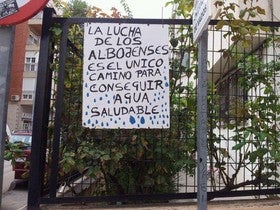 LA LUCHA
DE LOS
ALBOJENSES
ES EL UNICO
CAMINO PARA
CONSEGUIR
AGUA
SALUDABLE